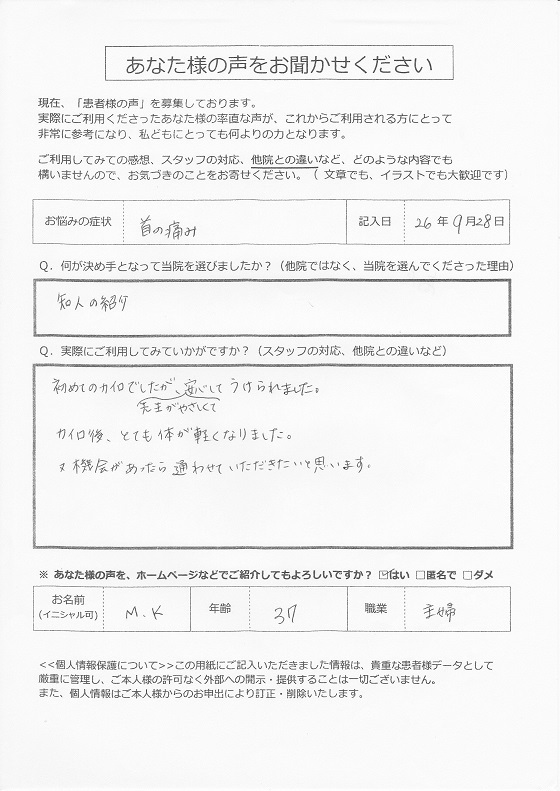 あなた様の声をお聞かせください
現在、「患者様の声」を募集しております。
実際にご利用くださったあなた様の率直な声が、これからご利用される方にとって
非常に参考になり、私どもにとっても何よりの力となります。
ご利用してみての感想、スタッフの対応、他院との違いなど、どのような内容でも
構いませんので、お気づきのことをお寄せください。（文章でも、イラストでも大歓迎です）
お悩みの症状 首の痛み 記入日 26年9月28日
Q．何が決め手となって当院を選びましたか？（他院ではなく、当院を選んでくださった理由）
知人の紹介
Q．実際にご利用してみていかがですか？（スタッフの対応、他院との違いなど）
初めてのカイロでしたが、安心してうけられました。
先生がやさしくて
カイロ後、とても体が軽くなりました。
又機会があったら通わせていただきたいと思います。
※ あなた様の声を、ホームページなどでご紹介してもよろしいですか？ ☑はい □匿名で □ダメ
お名前 年齢 職業
(イニシャル可) M.K 37 主婦
<<個人情報保護について>>この用紙にご記入いただきました情報は、貴重な患者様データとして
厳重に管理し、ご本人様の許可なく外部への開示・提供することは一切ございません。
また、個人情報はご本人様からのお申出により訂正・削除いたします。